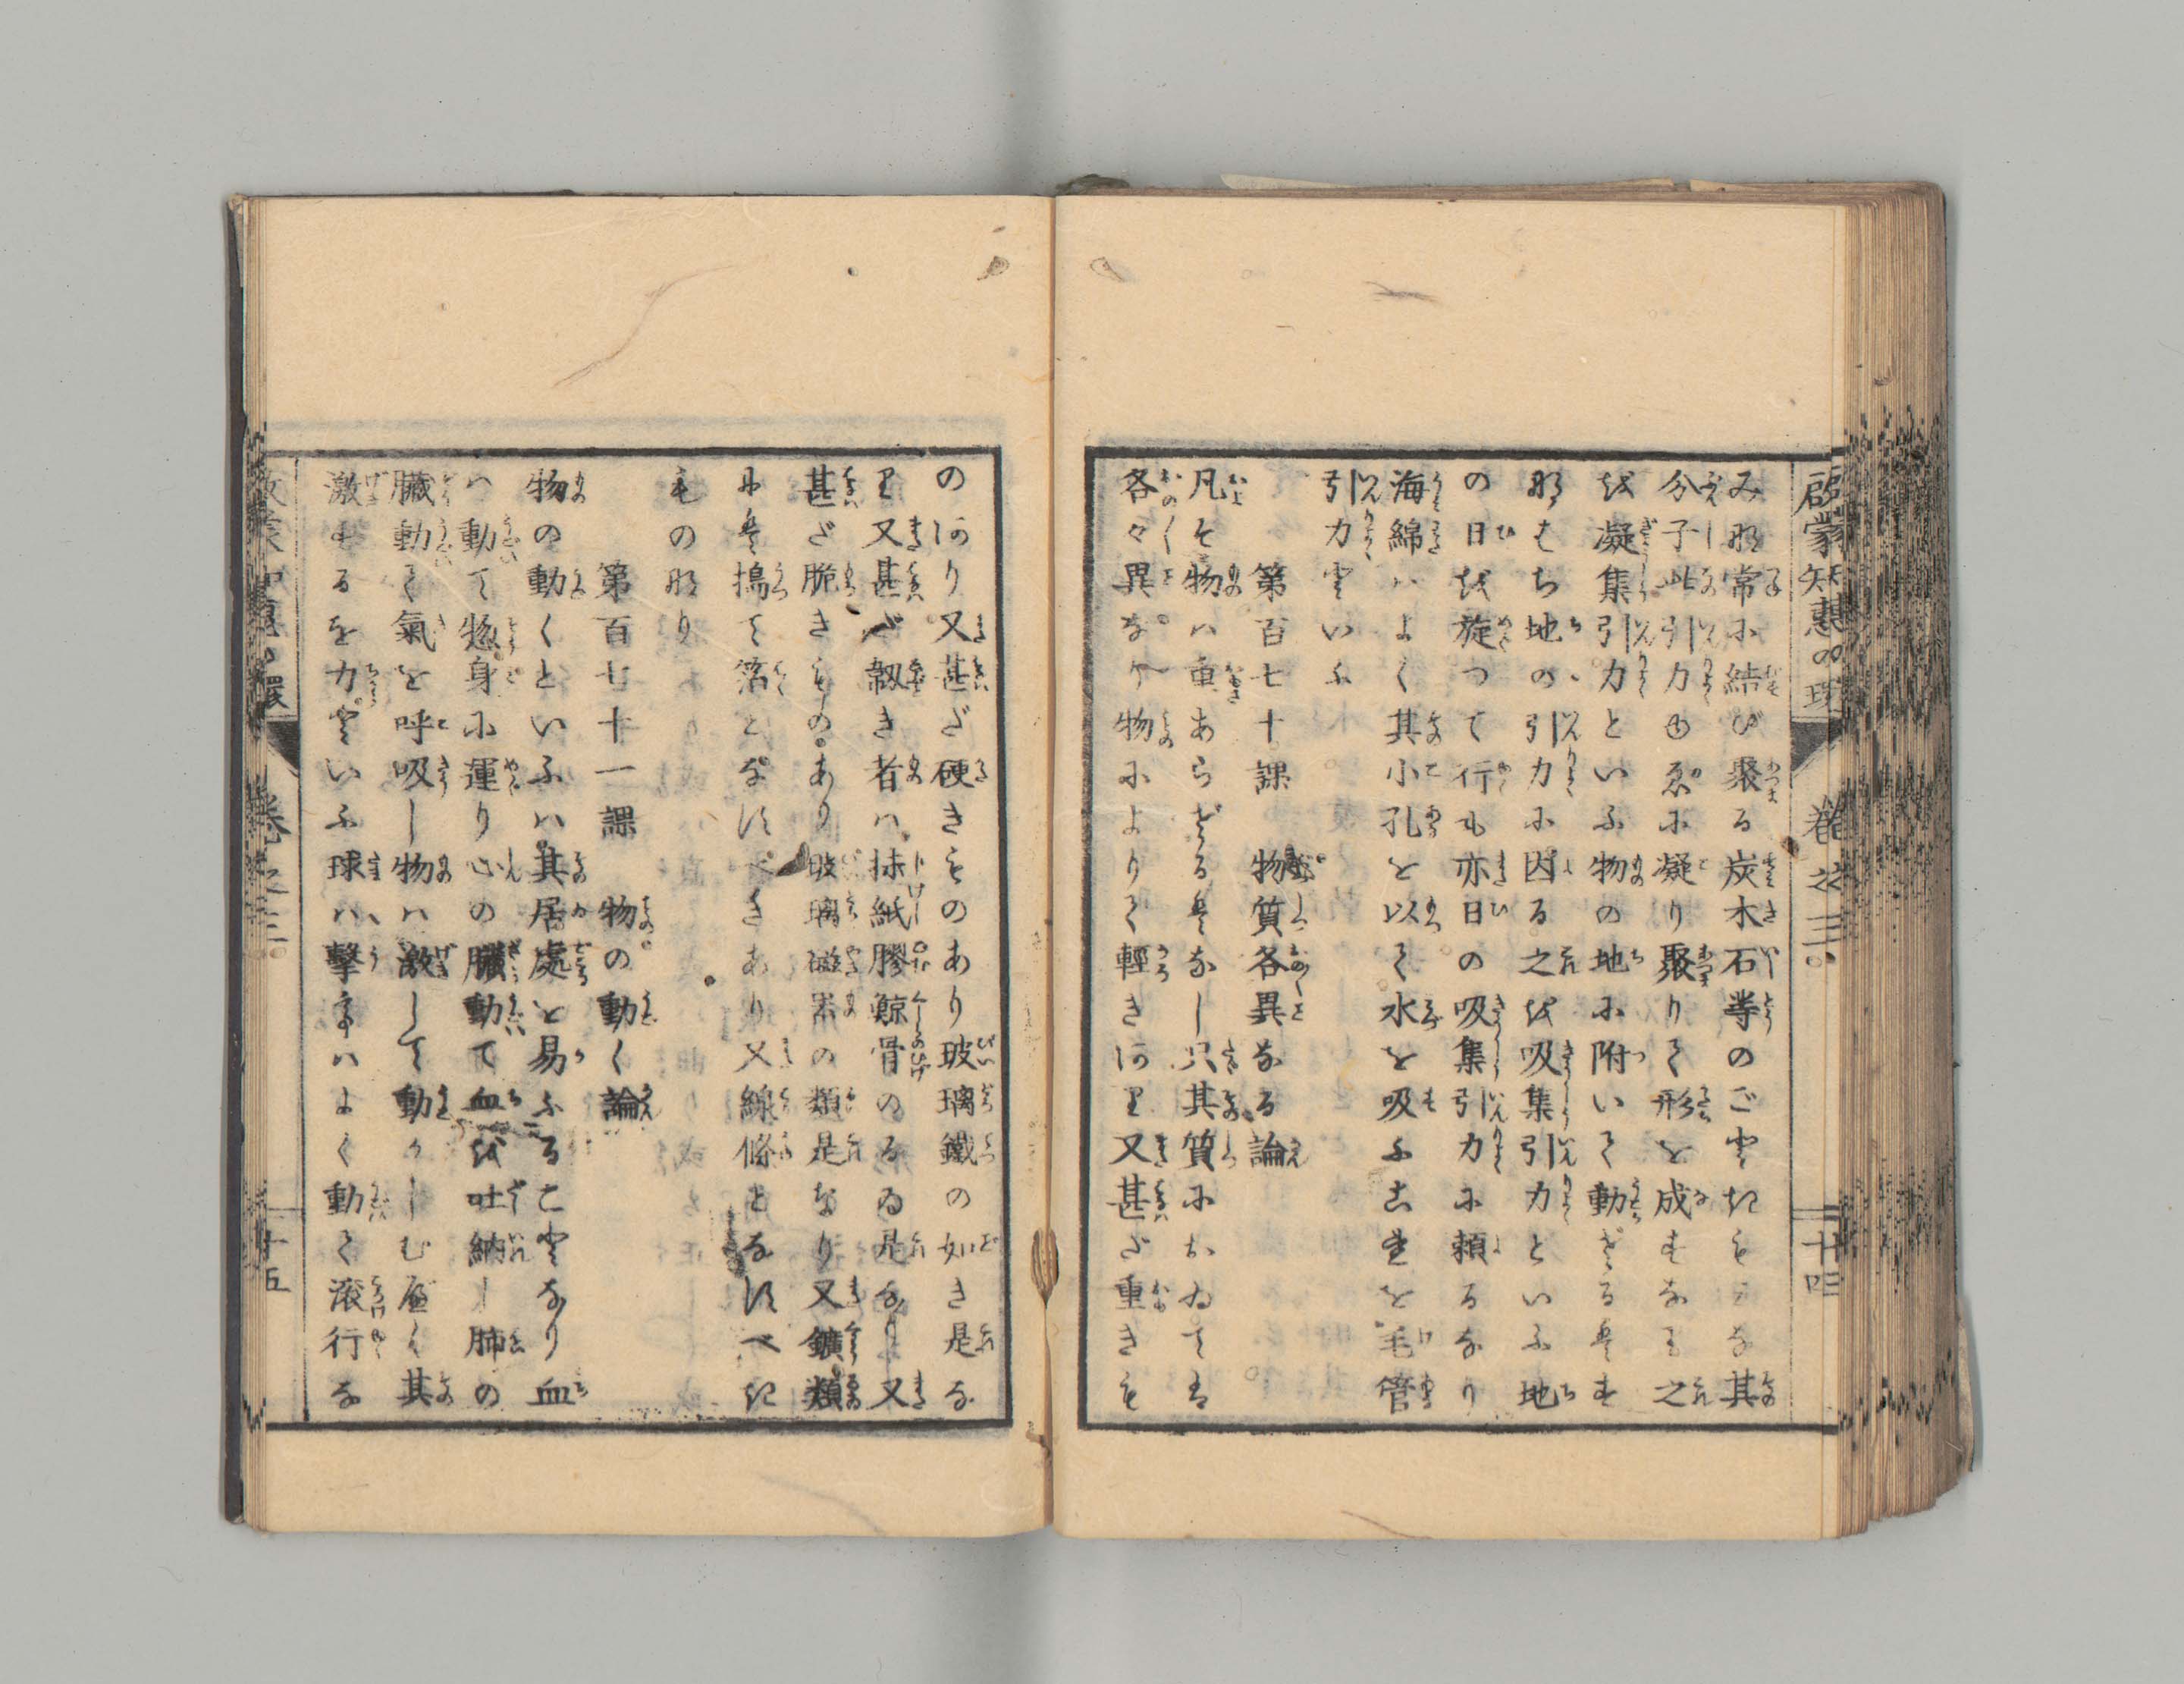 啓蒙知惠の環 巻之三 二十四
み那常小結び聚る炭木石等のごときもみな其
分子此引力ゆゑに凝り聚りて形を成すなる之
を凝集引力といふ物の地に附いて動ざる事は
即ち地の引力に因る之を吸集引力といふ地
の日を旋つて行も亦日の吸集引力に頼るなり
海綿はよく其小孔を以て水を吸ふこれを毛管
引力といふ
第百七十課 物質各異なる論
凡そ物は重あらざる事なし只其質においては
各々異なり物によりて輕きあり又甚だ重きも
のあり又甚だ硬きものあり玻璃鐵の如き是な
り又甚だ韌き者は抹紙膠鯨骨のるゐ是なり又
甚だ脆きものあり玻璃磁噐の類是なり又鑛類
にて搗て箔となすべきあり又線條となすべき
もの那り
第百七十一課 物の動く論
物の動くといふは其居處を易ふることなり血
は動て惣身に運り心の臓動て血を吐納し肺の
臓動て氣を呼吸し物は激して動かしむ
激するを力といふ球は擊ときはよく動て滚行な
巻之三 十五